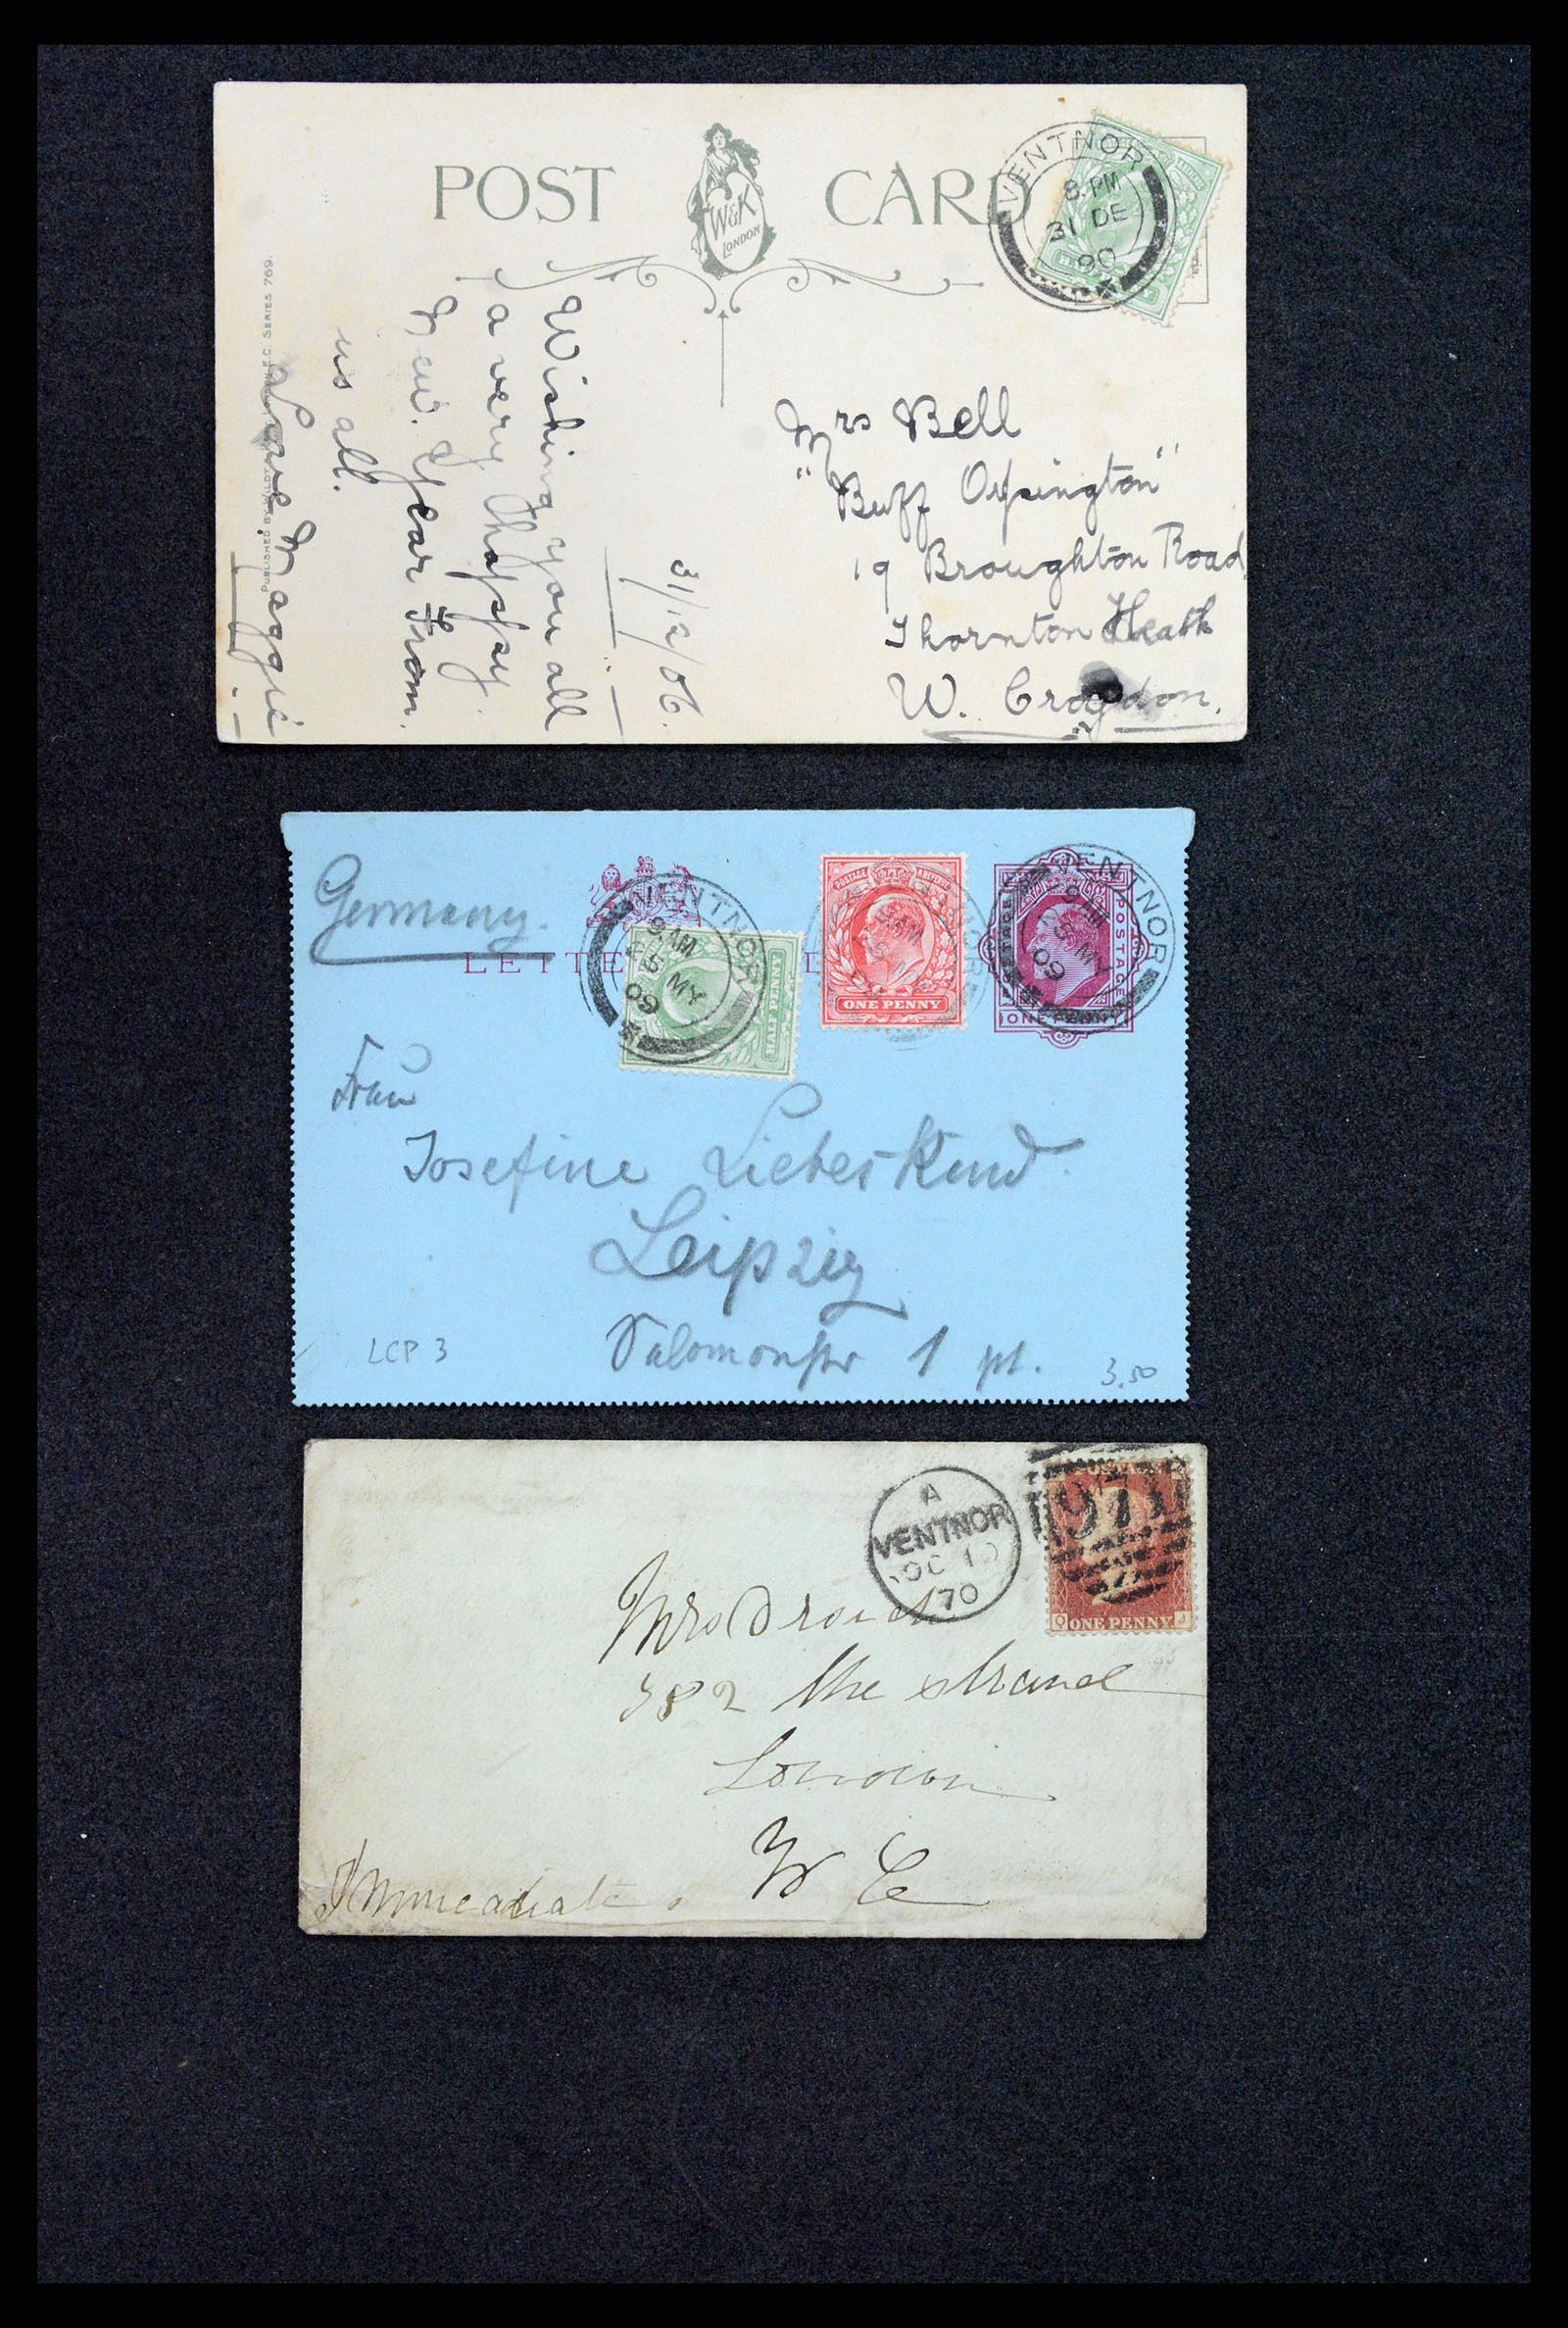 POST CARD
W&K
LONDON
VENTNOR
8. PM
31 DE
90
Wishing you all
a very happy
New. Year from.
us all.
Love. Maggie
31/12/06.
Mrs Bell
"Buff Orpington"
19 Broughton Road
Thornton Heath
W. Croydon.
SERIES 769.
Germany.
LETTE
VENTNOR
9 AM
MY
09
HALF PENNY
POSTAGE
ONE PENNY
VENTNOR
MY
09
POSTAGE
ONE PENNY
Frau
Josefine Liebeskind
Leipzig
Salomonstr 1 pt.
LCP 3
3.50
A
VENTNOR
OC 10
70
971
Q ONE PENNY J
Mrs
382 the strand
London
W C
Immeadiate.